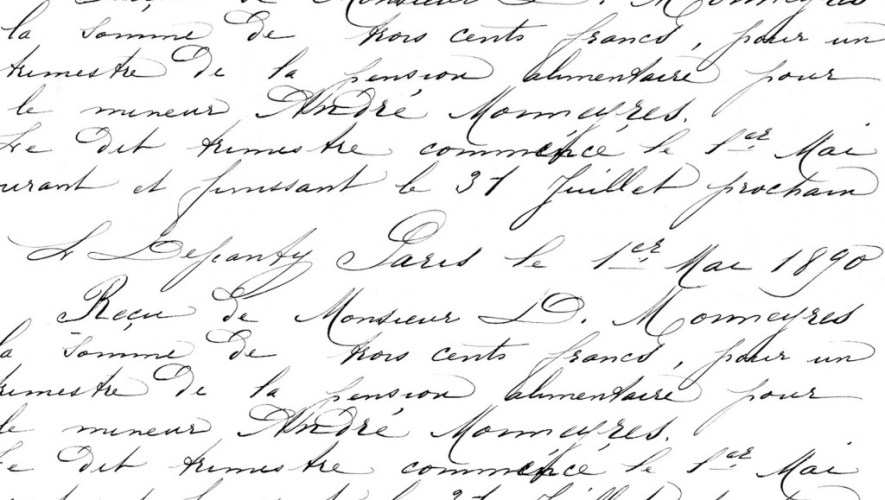 Reçu de Monsieur D. Monneyres
la somme de trois cents francs, pour un
trimestre de la pension alimentaire pour
le mineur André Monneyres.
Le dit trimestre commencé le 1er Mai
courant et finissant le 31 Juillet prochain
Paris le 1er Mai 1890
Reçu de Monsieur D. Monneyres
la somme de trois cents francs, pour un
trimestre de la pension alimentaire pour
le mineur André Monneyres.
Le dit trimestre commencé le 1er Mai
courant et finissant le 31 Juillet